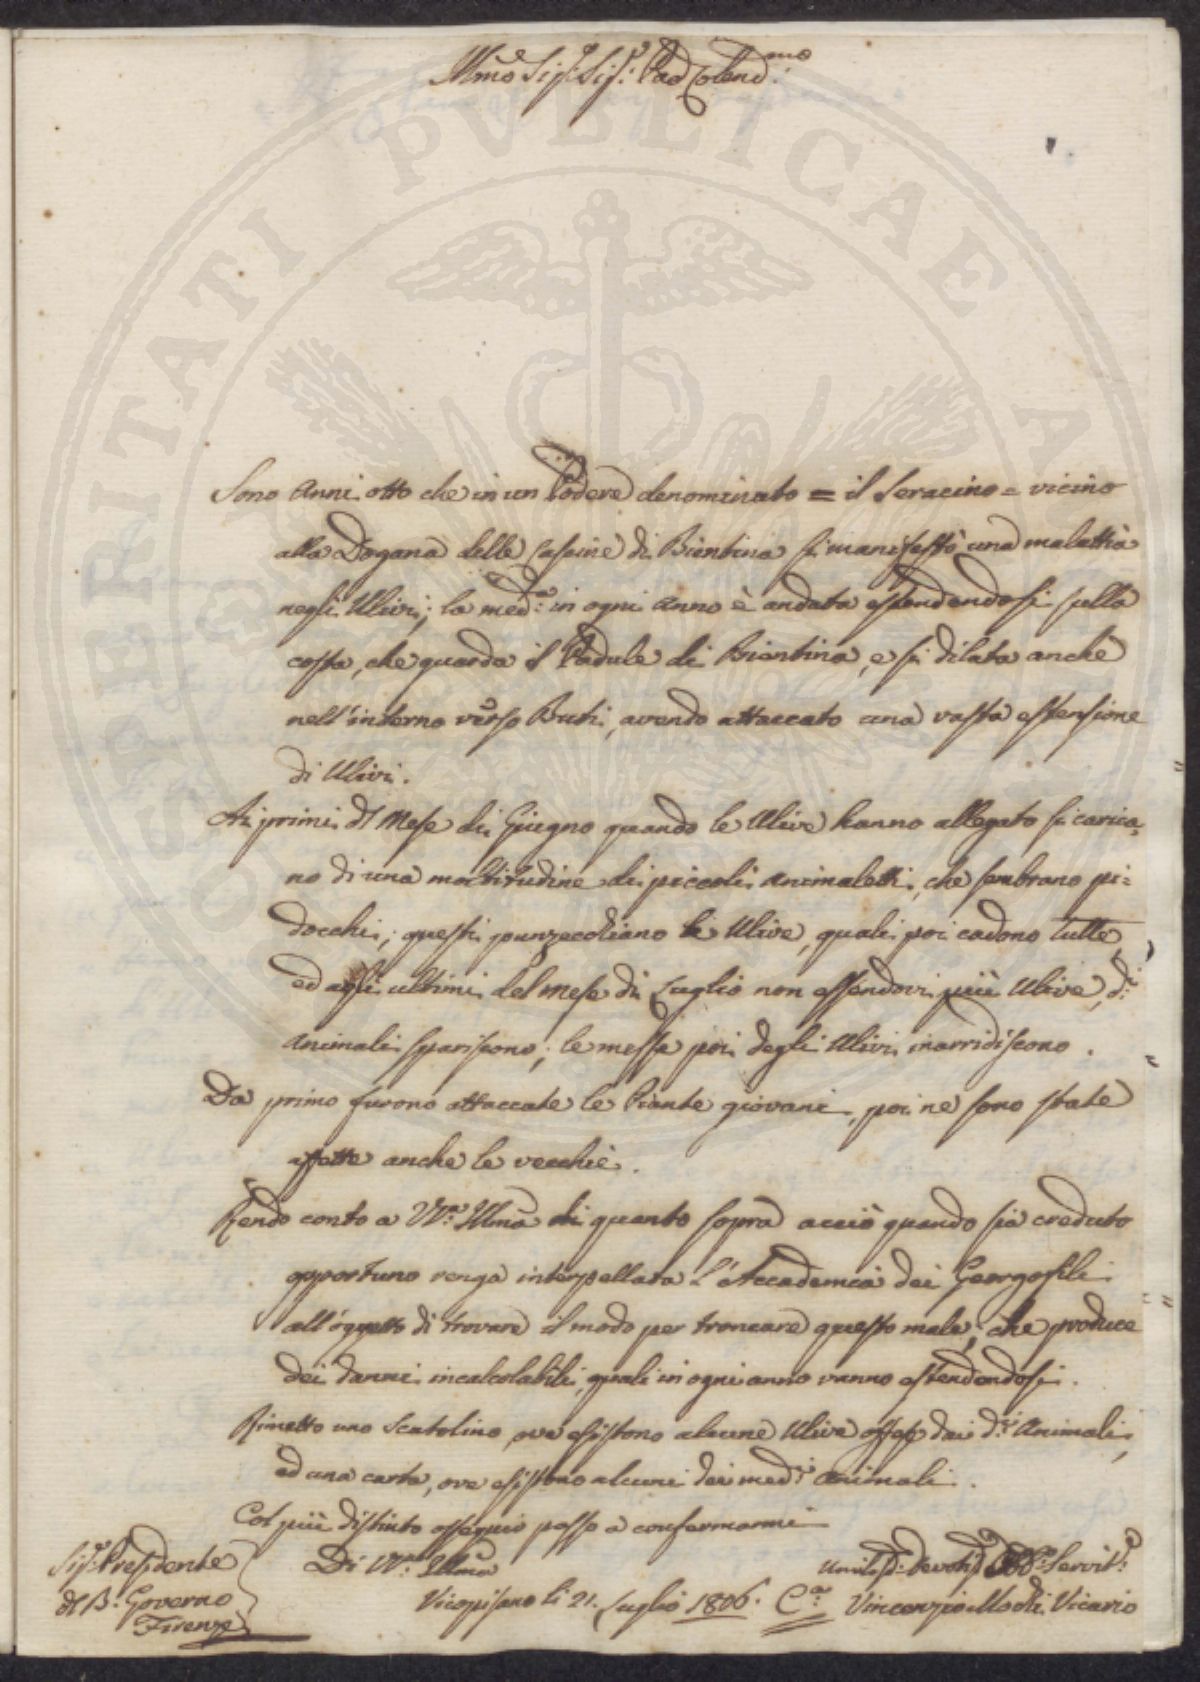 Ill.mo Sig.r Sig.r Pad. Colend.mo
PROSPERITATI PVBLICAE AVGENDAE
Sono Anni otto che in un Podere denominato = il Seracino = vicino
alla Dogana delle Cascine di Bientina si manifestò una malattia
negli Ulivi; la med.a in ogni Anno è andata estendendosi sulla
costa, che guarda il Padule di Bientina, e si dilata anche
nell'interno verso Buti, avendo attaccato una vasta estensione
di Ulivi.
Ai primi del Mese di Giugno quando le Ulive hanno allegato si carica,
no di una moltitudine di piccoli animaletti, che sembrano pi=
docchi; questi punzecchiano le Ulive, quali poi cadono tutte,
ed agli ultimi del Mese di Luglio non essendovi più Ulive, d.i
Animali spariscono; le messe poi degli Ulivi inarridiscono.
Da primo furono attaccate le Piante giovani, poi ne sono state
affette anche le vecchie.
Rendo conto a V.S. Ill.ma di quanto sopra acciò quando sia creduto
opportuno venga interpellata l'Accademia dei Georgofili
all'oggetto di trovare il modo per troncare questo male, che produce
dei danni incalcolabili, quali in ogni anno vanno estendendosi.
Rimetto uno Scatolino, ove esistono alcune Ulive offese dai d.i Animali,
ed una carta, ove esistono alcuni dei med.i Animali.
Col più distinto ossequio passo a confermarmi
Di V.S. Ill.ma
Sig.r Presidente
del B. Governo
Firenze
Vicopisano li 21. Luglio 1806.
Umiliss. Devotiss. Obb. Servit.e
C.a Vincenzio Modi Vicario